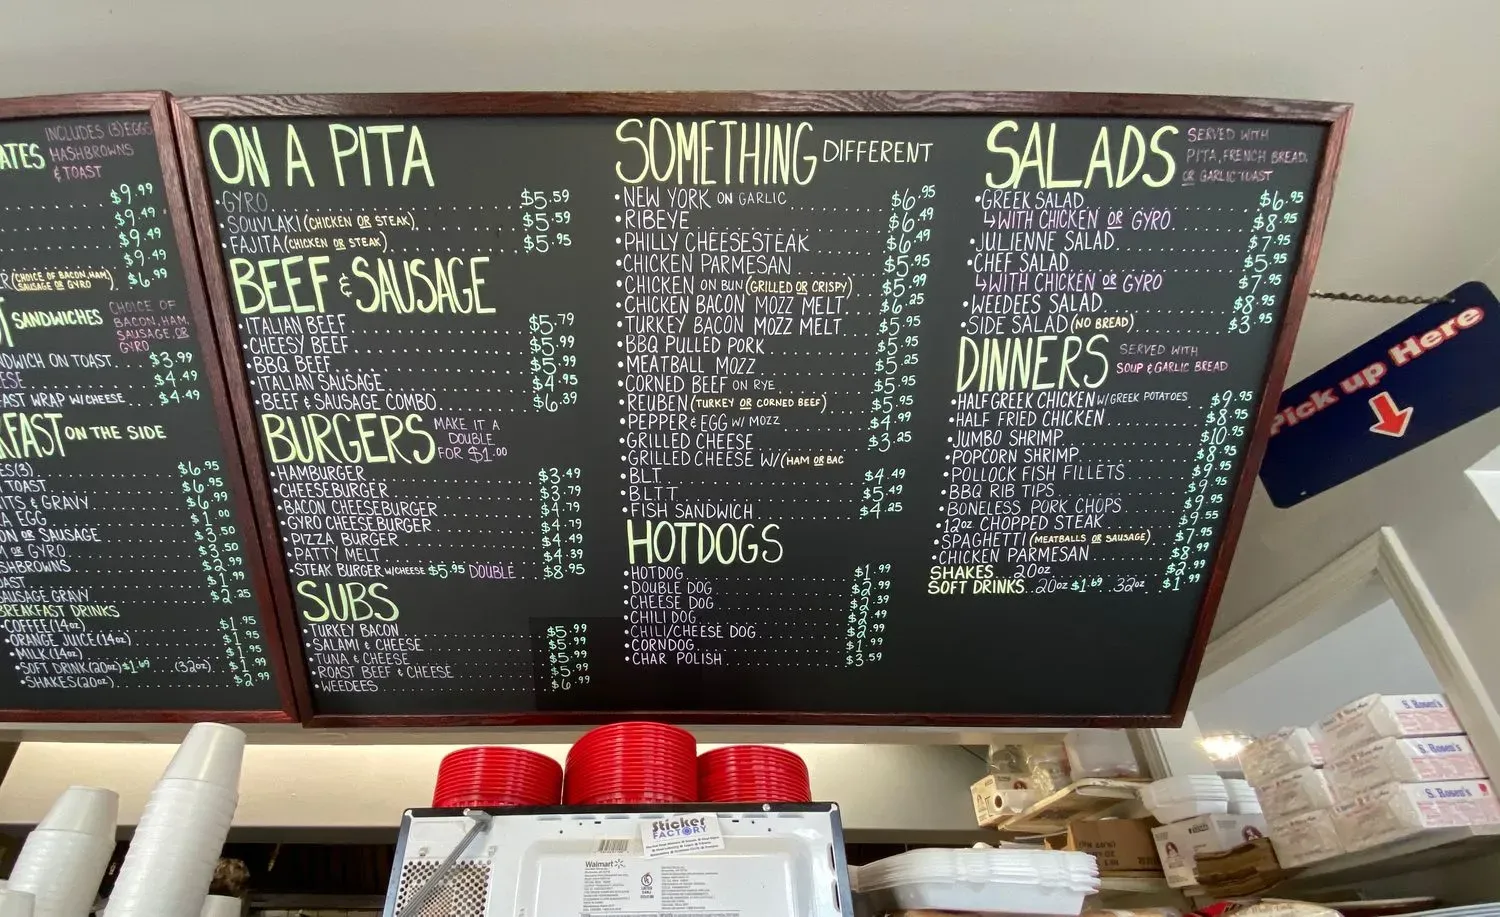 ATES INCLUDES (3) EGGS
HASHBROWNS
& TOAST
$9.99
$9.49
$9.49
$9.49
(CHOICE OF BACON, HAM, SAUSAGE OR GYRO) $6.99
SANDWICHES CHOICE OF
BACON, HAM,
SAUSAGE OR
GYRO
DWICH ON TOAST $3.99
ESE $4.49
AST WRAP W/CHEESE $4.49
FAST ON THE SIDE
ES(3) $6.95
TOAST $6.95
ITS & GRAVY $6.99
A EGG $1.00
ON OR SAUSAGE $3.50
M OR GYRO $3.50
SHBROWNS $2.99
OAST $1.99
AUSAGE GRAVY $2.25
BREAKFAST DRINKS
•COFFEE (14oz) $1.95
•ORANGE JUICE (14oz) $1.95
•MILK (14oz) $1.95
•SOFT DRINK (20oz) $1.69 (32oz) $1.99
•SHAKES (20oz) $2.99
ON A PITA
•GYRO $5.59
•SOUVLAKI (CHICKEN OR STEAK) $5.59
•FAJITA (CHICKEN OR STEAK) $5.95
BEEF & SAUSAGE
•ITALIAN BEEF $5.79
•CHEESY BEEF $5.99
•BBQ BEEF $5.99
•ITALIAN SAUSAGE $4.95
•BEEF & SAUSAGE COMBO $6.39
BURGERS MAKE IT A
DOUBLE
FOR $1.00
•HAMBURGER $3.49
•CHEESEBURGER $3.79
•BACON CHEESEBURGER $4.79
•GYRO CHEESEBURGER $4.79
•PIZZA BURGER $4.49
•PATTY MELT $4.39
•STEAK BURGER W/CHEESE $5.95 DOUBLE $8.95
SUBS
•TURKEY BACON $5.99
•SALAMI & CHEESE $5.99
•TUNA & CHEESE $5.99
•ROAST BEEF & CHEESE $5.99
•WEEDEES $6.99
SOMETHING DIFFERENT
•NEW YORK ON GARLIC $6.95
•RIBEYE $6.49
•PHILLY CHEESESTEAK $6.49
•CHICKEN PARMESAN $5.95
•CHICKEN ON BUN (GRILLED OR CRISPY) $5.99
•CHICKEN BACON MOZZ MELT $6.25
•TURKEY BACON MOZZ MELT $5.95
•BBQ PULLED PORK $5.95
•MEATBALL MOZZ $5.25
•CORNED BEEF ON RYE $5.95
•REUBEN (TURKEY OR CORNED BEEF) $5.95
•PEPPER & EGG W/ MOZZ $4.99
•GRILLED CHEESE $3.25
•GRILLED CHEESE W/(HAM OR BAC
•BLT $4.49
•BLTT $5.49
•FISH SANDWICH $4.25
HOTDOGS
•HOTDOG $1.99
•DOUBLE DOG $2.99
•CHEESE DOG $2.39
•CHILI DOG $2.49
•CHILI/CHEESE DOG $2.99
•CORNDOG $1.99
•CHAR POLISH $3.59
SALADS SERVED WITH
PITA, FRENCH BREAD,
OR GARLIC TOAST
•GREEK SALAD $6.95
↳WITH CHICKEN OR GYRO $8.95
•JULIENNE SALAD $7.95
•CHEF SALAD $5.95
↳WITH CHICKEN OR GYRO $7.95
•WEEDEES SALAD $8.95
•SIDE SALAD (NO BREAD) $3.95
DINNERS SERVED WITH
SOUP & GARLIC BREAD
•HALF GREEK CHICKEN W/GREEK POTATOES $9.95
•HALF FRIED CHICKEN $8.95
•JUMBO SHRIMP $10.95
•POPCORN SHRIMP $8.95
•POLLOCK FISH FILLETS $9.95
•BBQ RIB TIPS $9.95
•BONELESS PORK CHOPS $9.95
•12oz CHOPPED STEAK $9.55
•SPAGHETTI (MEATBALLS OR SAUSAGE) $7.95
•CHICKEN PARMESAN $8.99
SHAKES 20oz $2.99
SOFT DRINKS 20oz $1.69 32oz $1.99
Pick up Here
S. Rosen's
S. Rosen's
S. Rosen's
Sticker
FACTORY
Walmart